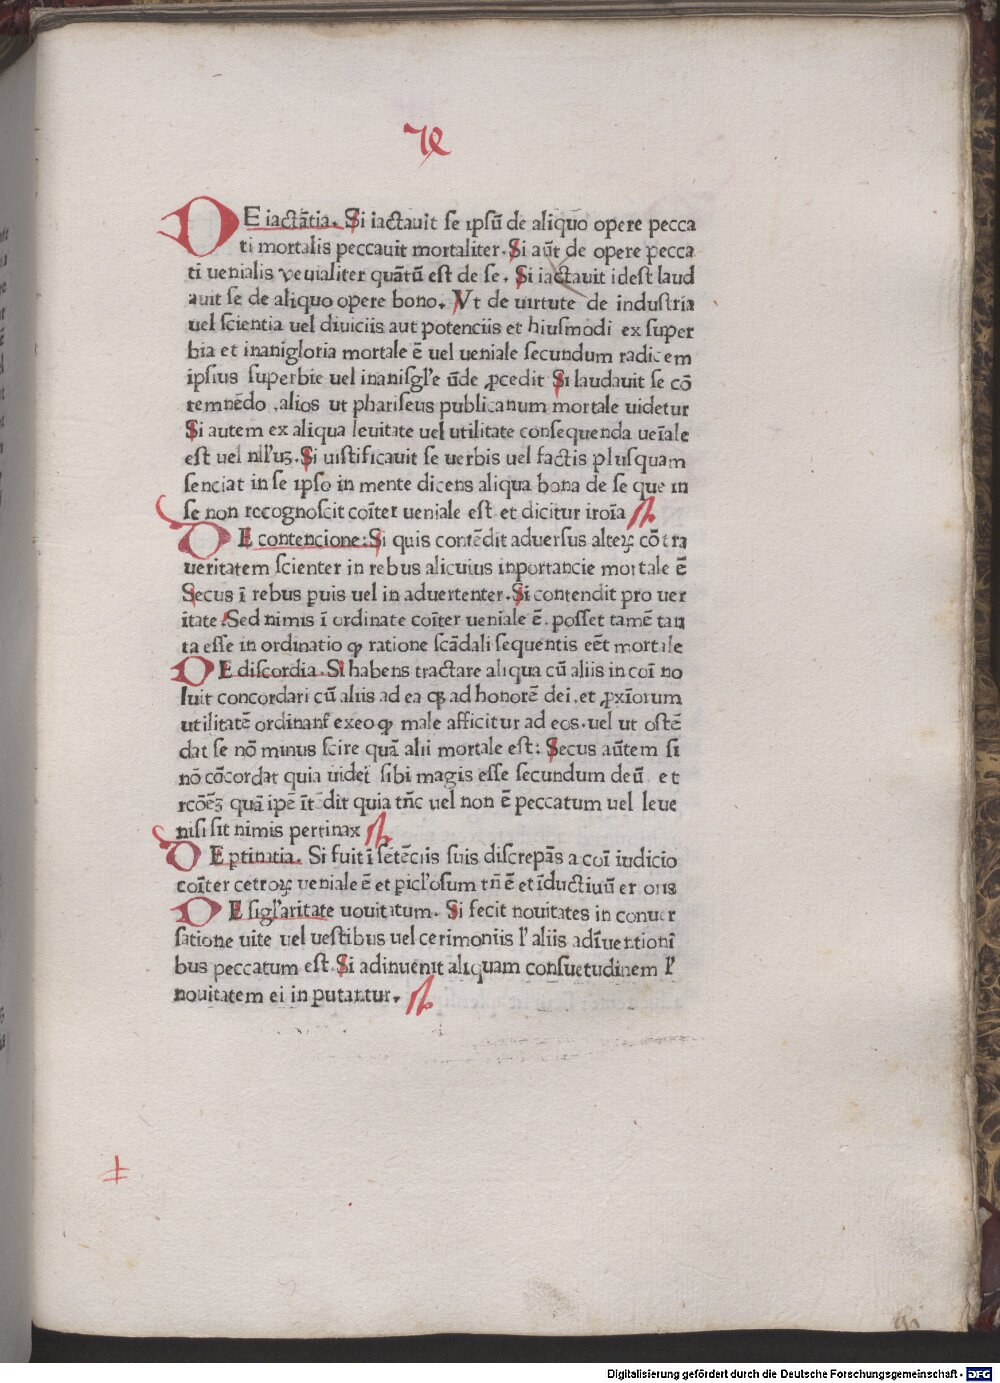 DE iactãtia. Si iactauit se ipsũ de aliquo opere pecca
ti mortalis peccauit mortaliter. Si aũt de opere pecca
ti uenialis veuialiter quãtũ est de se. Si iactauit id est laud
auit se de aliquo opere bono. Vt de uirtute de industria
uel scientia uel diuiciis aut potenciis et hiusmodi ex super
bia et inanigloria mortale ẽ uel ueniale secundum radicem
ipsius superbie uel inanisgl'e ũde ꝓcedit Si laudauit se cõ
temnẽdo .alios ut phariseus publicanum mortale uidetur
Si autem ex aliqua leuitate uel utilitate consequenda ueĩale
est uel nll'uꝫ. Si uistificauit se uerbis uel factis plusquam
senciat in se ipso in mente dicens aliqua bona de se que in
se non recognoscit coĩter ueniale est et dicitur iroĩa
DE contencione: Si quis contẽdit aduersus alteꝝ cõtra
ueritatem scienter in rebus alicuius inportancie mortale ẽ
Secus ĩ rebus puis uel in aduertenter. Si contendit pro uer
itate: Sed nimis ĩ ordinate coĩter ueniale ẽ. posset tamẽ tan
ta esse in ordinatio ꝙ ratione scãdali sequentis eẽt mortale
DE discordia. Si habens tractare aliqua cũ aliis in coĩ no
luit concordari cũ aliis ad ea ꝙ ad honorẽ dei. et ꝓxĩorum
utilitatẽ ordinant exeo ꝙ male afficitur ad eos. uel ut ostẽ
dat se nõ minus scire quã alii mortale est: Secus aũtem si
nõ cõcordat quia uidet sibi magis esse secundum deũ et
rcõẽꝫ quã ipẽ ĩtẽdit quia tñc uel non ẽ peccatum uel leue
nisi sit nimis pertinax
DE ptinatia. Si fuit ĩ sẽtẽciis suis discrepãs a coĩ iudicio
coĩter cetroꝝ ueniale ẽ et picl'osum tñ ẽ et ĩductiuũ eroris
DE sigl'aritate uouitatum. Si fecit nouitates in conuer
satione uite uel uestibus uel cerimoniis l' aliis adĩuentioni
bus peccatum est. Si adinuenit aliquam consuetudinem l'
nouitatem ei in putantur.
Digitalisierung gefördert durch die Deutsche Forschungsgemeinschaft - DFG